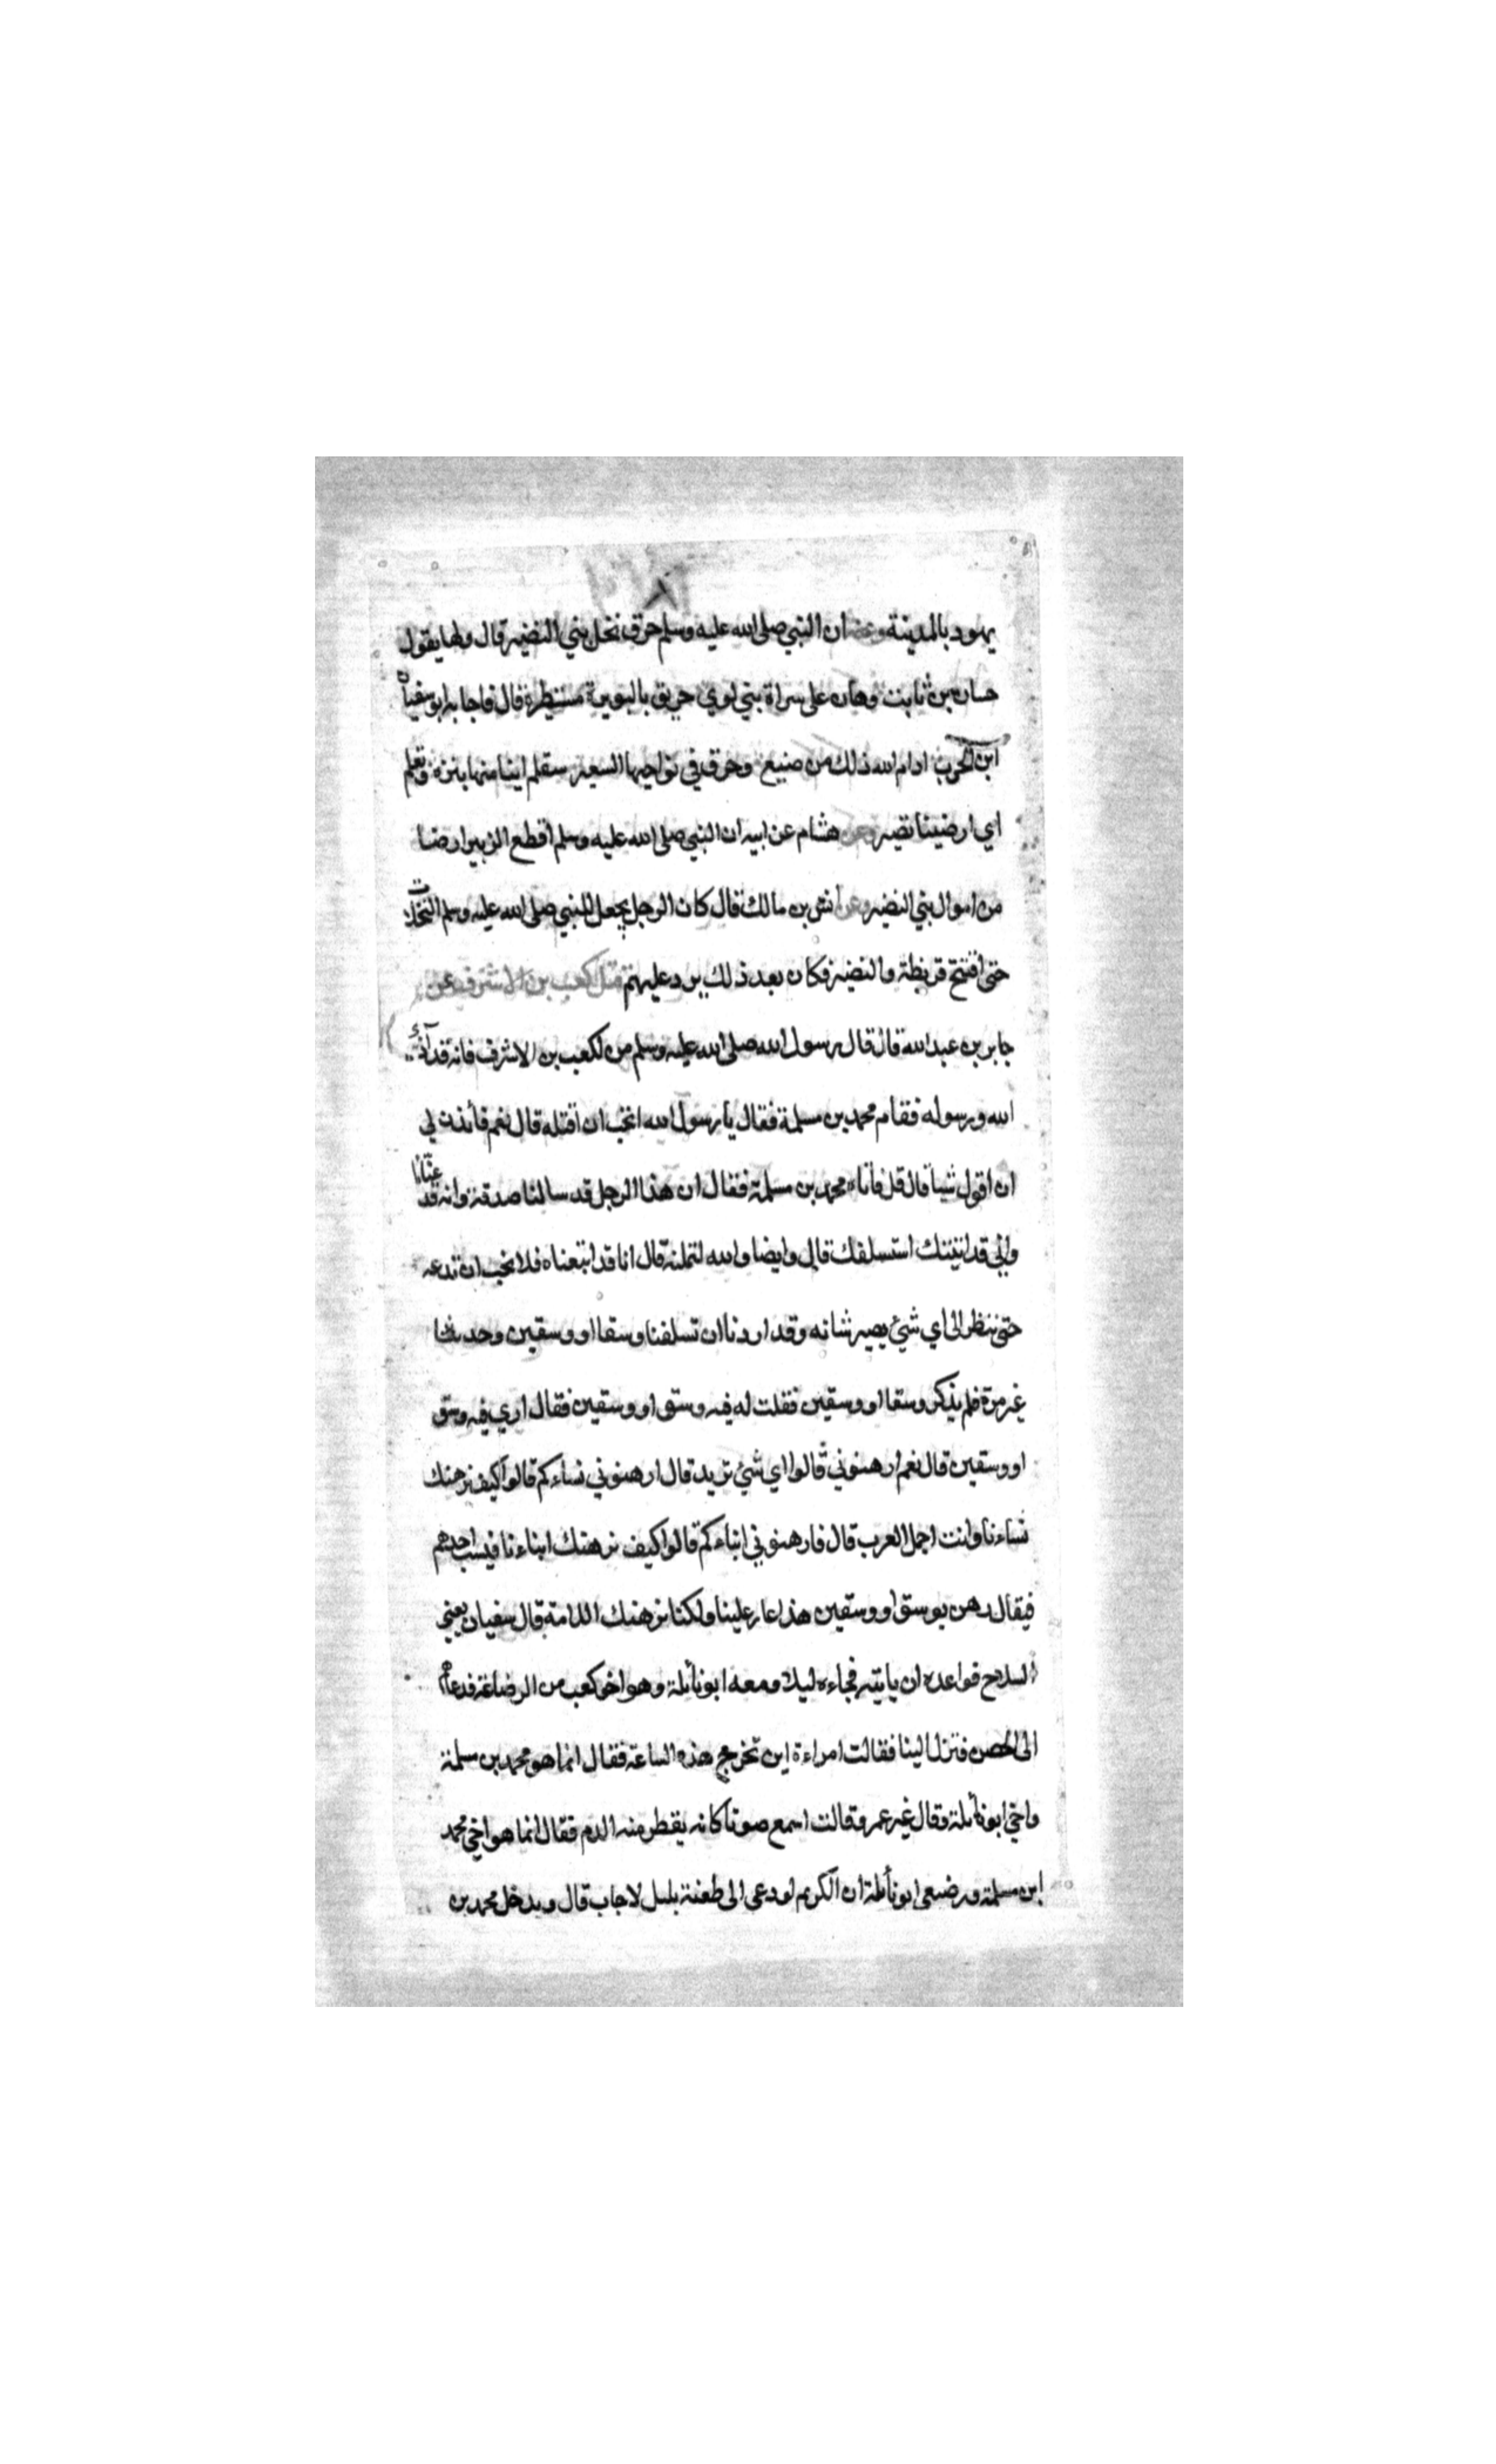 يهود بالمدينة وعنه ان النبي صلى الله عليه وسلم حرق نخل بني النضير قال ولها يقول
حسان بن ثابت وهان على سراة بني لوي حريق بالبويرة مستطير قال فاجابه ابو سفيان
ابن الحرب ادام الله ذلك من صنيع وحرق في نواحيها السعير ستعلم اينا منها بنزه وتعلم
اي ارضينا تضير وعن هشام عن ابيه ان النبي صلى الله عليه وسلم اقطع الزبير ارضا
من اموال بني النضير وعن أنس بن مالك قال كان الرجل يجعل للنبي صلى الله عليه وسلم النخلات
حتى افتتح قريظة والنضير فكان بعد ذلك يرد عليهم قتل كعب بن الاشرف عن
جابر بن عبد الله قال قال رسول الله صلى الله عليه وسلم من لكعب بن الاشرف فانه قد آذى
الله ورسوله فقام محمد بن مسلمة فقال يا رسول الله اتحب ان اقتله قال نعم فأذن لي
ان اقول شيأ قال قل فأتاه محمد بن مسلمة فقال ان هذا الرجل قد سالنا صدقة وانه قد عنّانا
واني قد اتيتك استسلفك قال وايضا والله لتملنه قال انا قد اتبعناه فلا نحب ان ندعه
حتى ننظر الى اي شيئ يصير شانه وقد اردنا ان تسلفنا وسقا او وسقين وحدثنا
غير مرة فلم يذكر وسقا او وسقين فقلت له فيه وسق او وسقين فقال اري فيه وسق
او وسقين قال نعم ارهنوني قالوا اي شيئ تريد قال ارهنوني نساءكم قالوا كيف نرهنك
نساءنا وانت اجمل العرب قال فارهنوني ابناءكم قالوا كيف نرهنك ابناءنا فيسب احدهم
فيقال رهن بوسق او وسقين هذا عار علينا ولكنا نرهنك اللامة قال سفيان يعني
السلاح فواعده ان ياتيه فجاءه ليلا ومعه ابو نائلة وهو اخو كعب من الرضاعة فدعاهم
الى الحصن فنزل الينا فقالت امراءة اين تخرج هذه الساعة فقال انما هو محمد بن مسلمة
واخي ابو نائلة وقال غير عمرو قالت اسمع صوتا كانه يقطر منه الدم فقال انما هو اخي محمد
ابن مسلمة ورضيعي ابو نائلة ان الكريم لو دعي الى طعنة بليل لاجاب قال ويدخل محمد بن